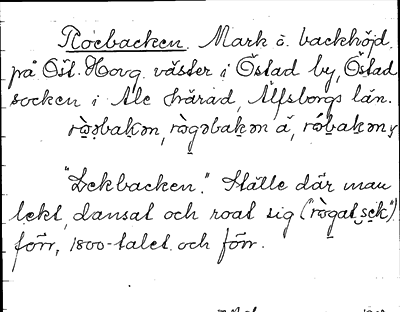 Roebacken. Mark o. backhöjd
på Öst. Hovg. väster i Östad by, Östad
socken i Ale härad, Älfsborgs län.
ròəbakən, rògəbakən å, róbakən,
"Lekbacken." Ställe där man
lekt, dansat och roat sig ("rògat sek")
förr, 1800-talet och förr.